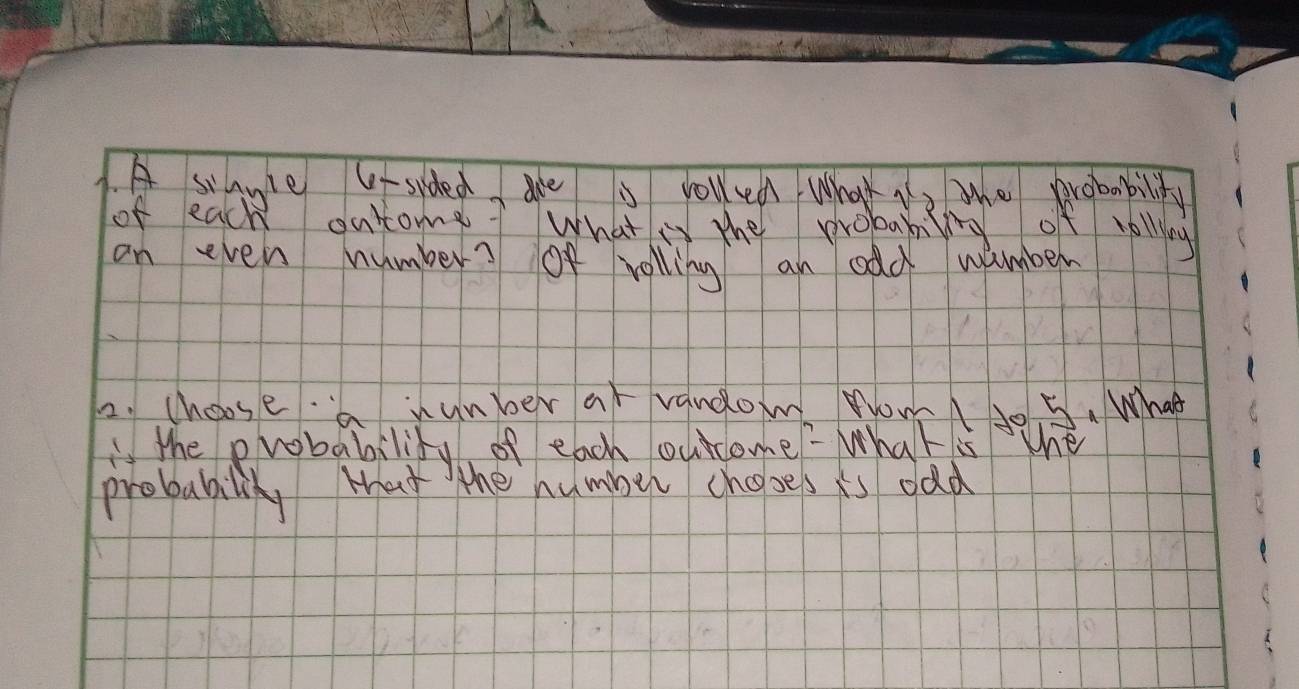 1. A single 6-sided die is rolled. What is the probability
of each outcome? What is the probability of rolling
an even number? Of rolling an odd number
2. Choose a number at random from 1 to 5. What
is the probability of each outcome? What is the
probability that the number choses is odd